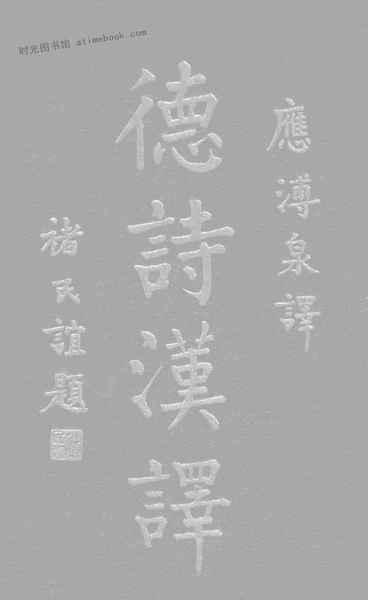 时光图书馆 atimebook.com
應溥泉譯
德詩漢譯
褚民誼題